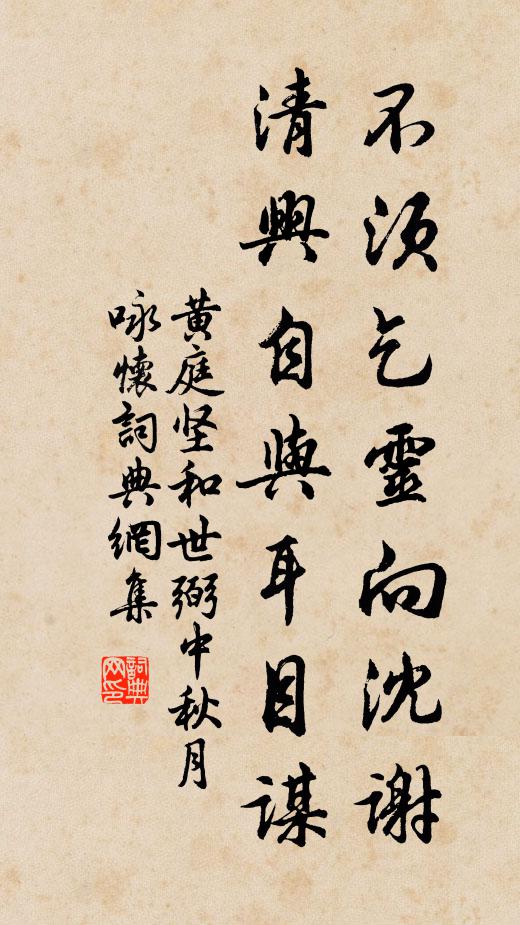 不須乞靈向沈謝
清興自與耳目謀
黄庭坚和世弼中秋月
咏懷詞典網集
詞典
网印